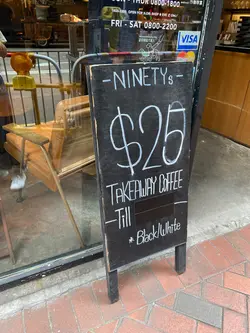 FRI - SAT 0800-2200
VISA
-NINETYs-
$25
TAKEAWAY COFFEE
-Till
* Black/White